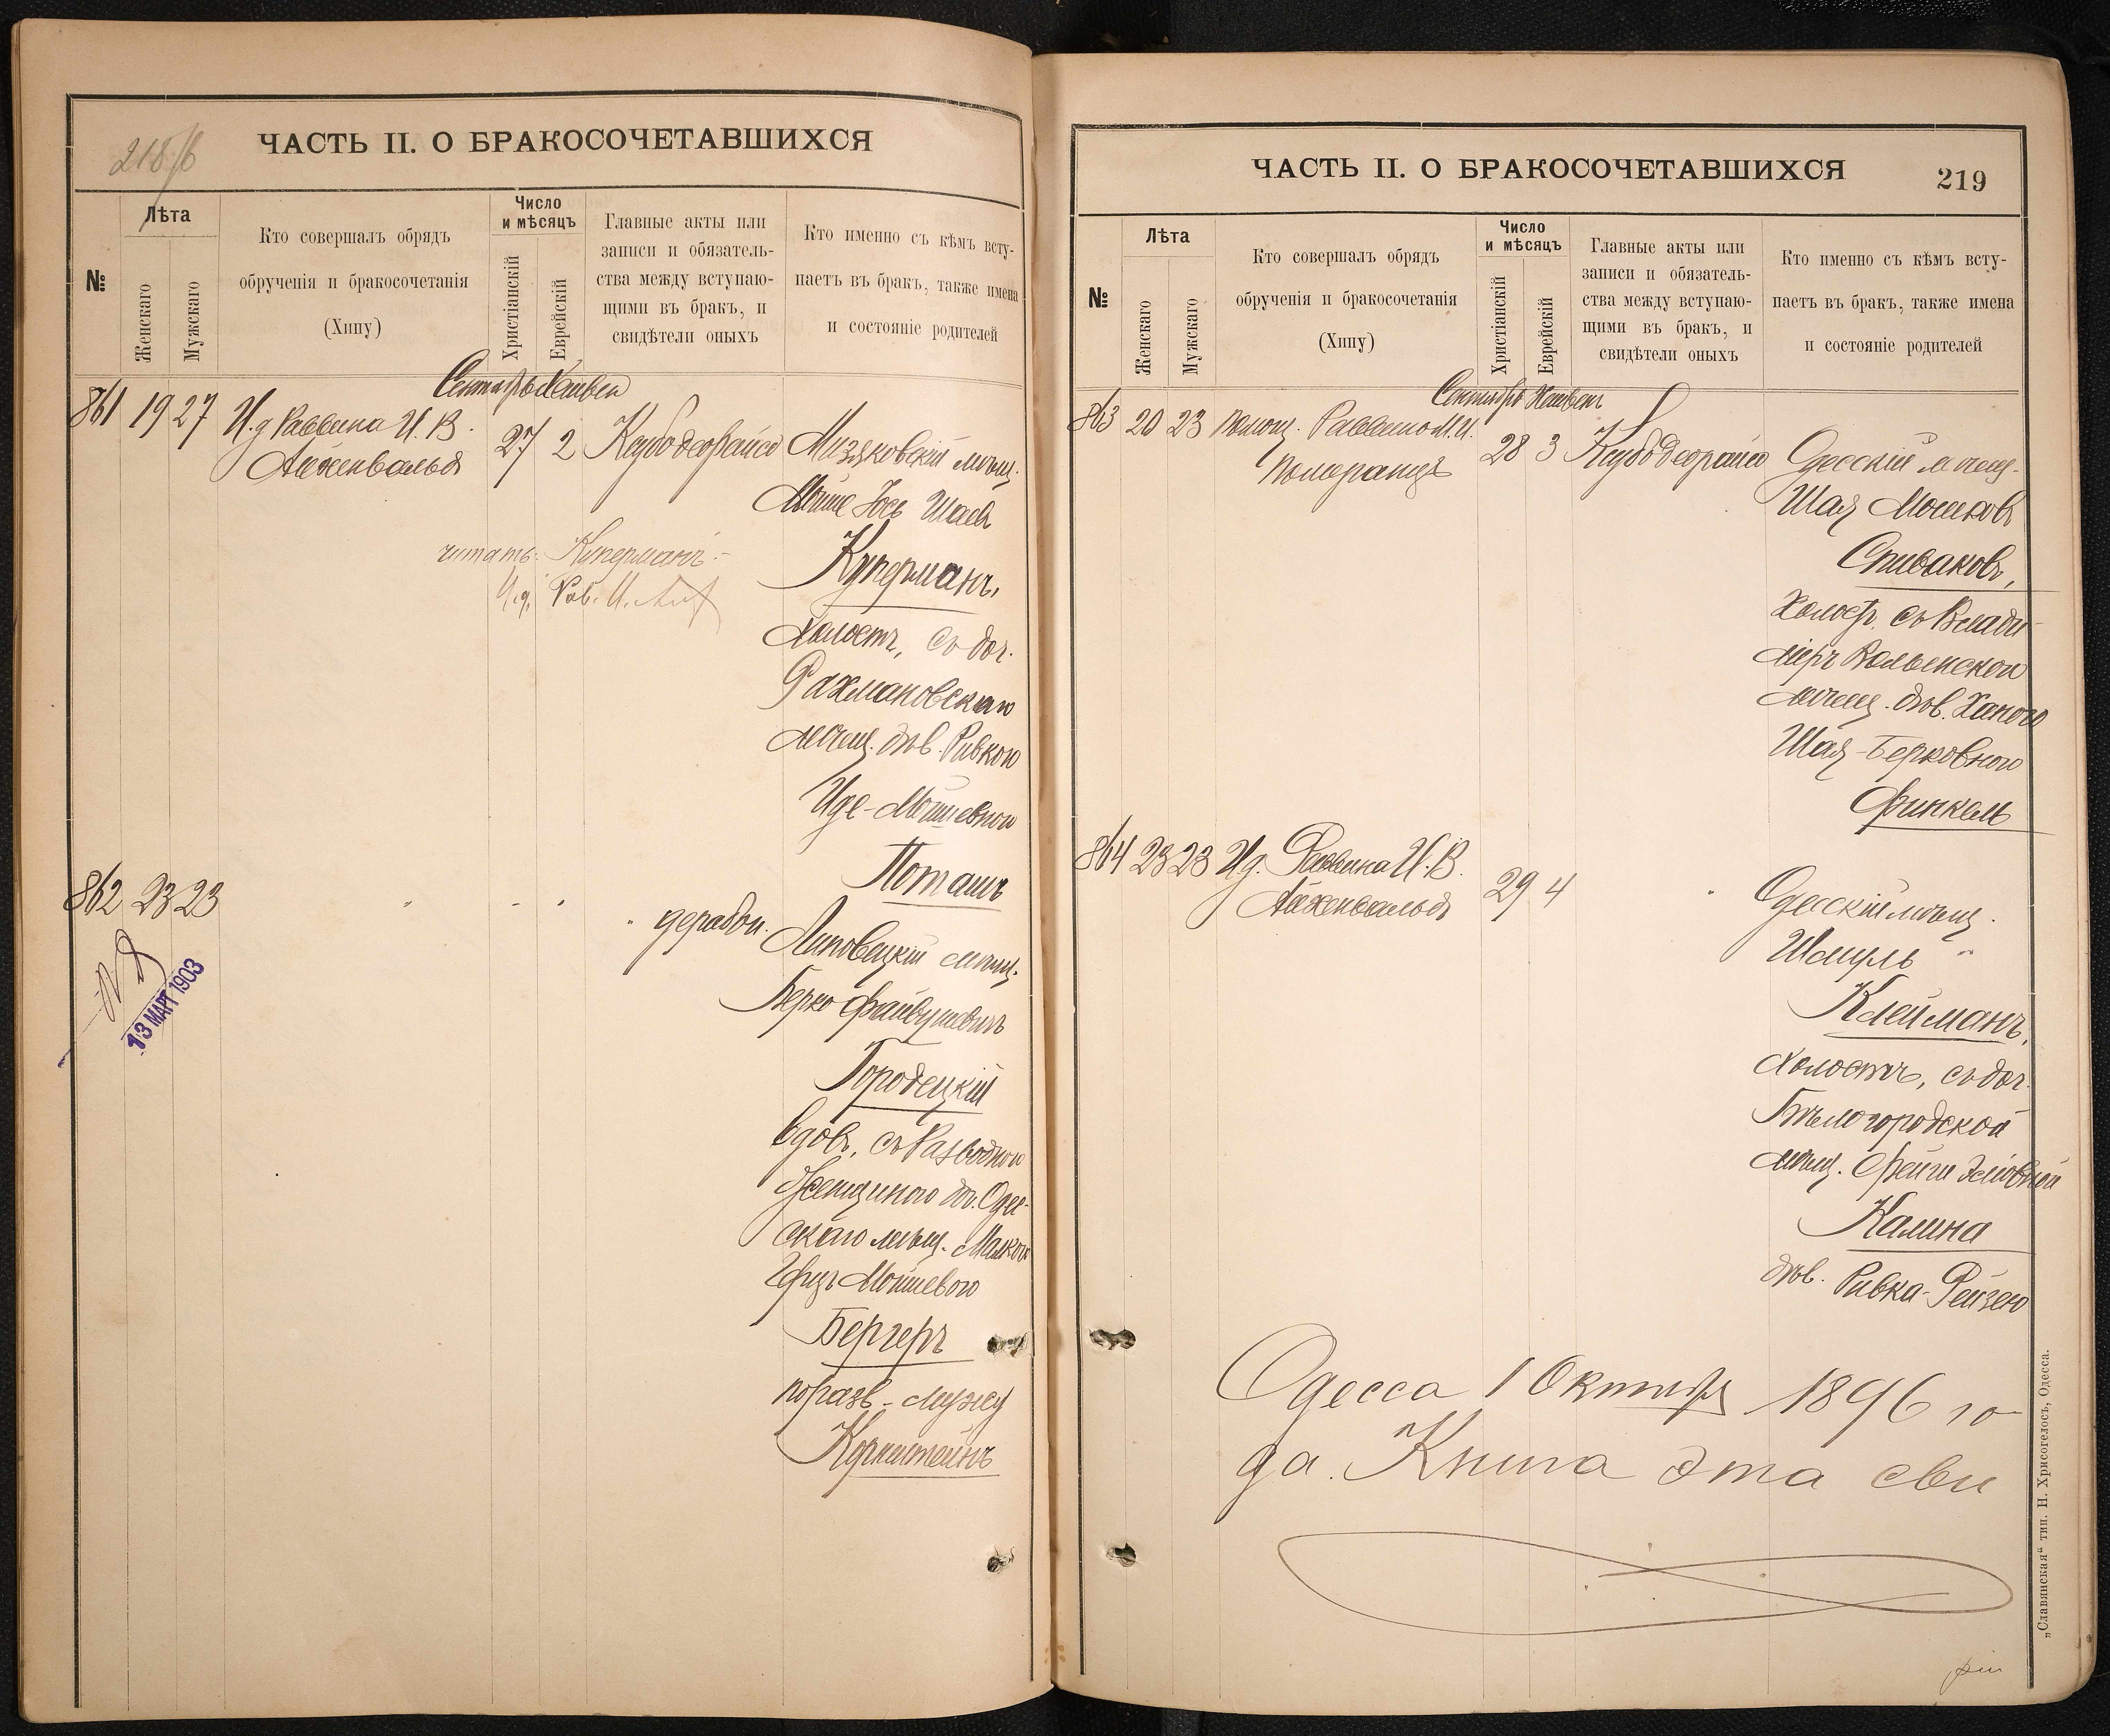 218/б
ЧАСТЬ II. О БРАКОСОЧЕТАВШИХСЯ
№
Лѣта
Женскаго
Мужскаго
Кто совершалъ обрядъ
обрученія и бракосочетанія
(Хипу)
Число
и мѣсяцъ
Христіанскій
Еврейскій
Главные акты или
записи и обязатель-
ства между вступаю-
щими въ бракъ, и
свидѣтели оныхъ
Кто именно съ кѣмъ всту-
паетъ въ бракъ, также имена
и состояніе родителей
Сентябрь Хешвен
861 19 27 И.д Раввина И. В.
Айхенвальдъ
27 2 Ксубо деорайсо
Мизяковскій мѣщ.
Мойше Іось Шаев
Куперманъ,
холостъ, съ доч.
Рахмановскаго
мѣщ. дѣв. Ривкою
Иде-Мойшевною
Поташъ
читать: Куперманъ.-
И.д. Рав. И.
862 23 23 " " " " дерабон.
Липовецкій мѣщ.
Берко Файвушевичъ
Городецкій
вдов, съ разводною
женщиною доч. Одес-
скаго мѣщ. Малкою
Герцъ Мойшевою
Бергеръ
по разв. мужу
Корнштейнъ
13 МАРТ 1903
ЧАСТЬ II. О БРАКОСОЧЕТАВШИХСЯ
219
№
Лѣта
Женскаго
Мужскаго
Кто совершалъ обрядъ
обрученія и бракосочетанія
(Хипу)
Число
и мѣсяцъ
Христіанскій
Еврейскій
Главные акты или
записи и обязатель-
ства между вступаю-
щими въ бракъ, и
свидѣтели оныхъ
Кто именно съ кѣмъ всту-
паетъ въ бракъ, также имена
и состояніе родителей
Сентябрь Хешвен
863 20 23 Помощ. Раввина М. И.
Померанцъ
28 3 Ксубо деорайсо
Одесскій мѣщ.
Шая Мошков
Спиваковъ,
холост. съ Влади-
міръ Волынской
мѣщ. дѣв. Ханою
Шая-Берковною
Финкель
864 23 23 И.д. Раввина И. В.
Айхенвальдъ
29 4 "
Одесскій мѣщ.
Шмуль "
Клейманъ,
холостъ, съ доч.
Бѣлогородской
мѣщ. Фейги
Калина
дѣв. Ривка-Рейзею
Одесса 1 Октября 1896 го
да. Книга эта сви
„Славянская“ тип. Н. Хрисогелосъ, Одесса.